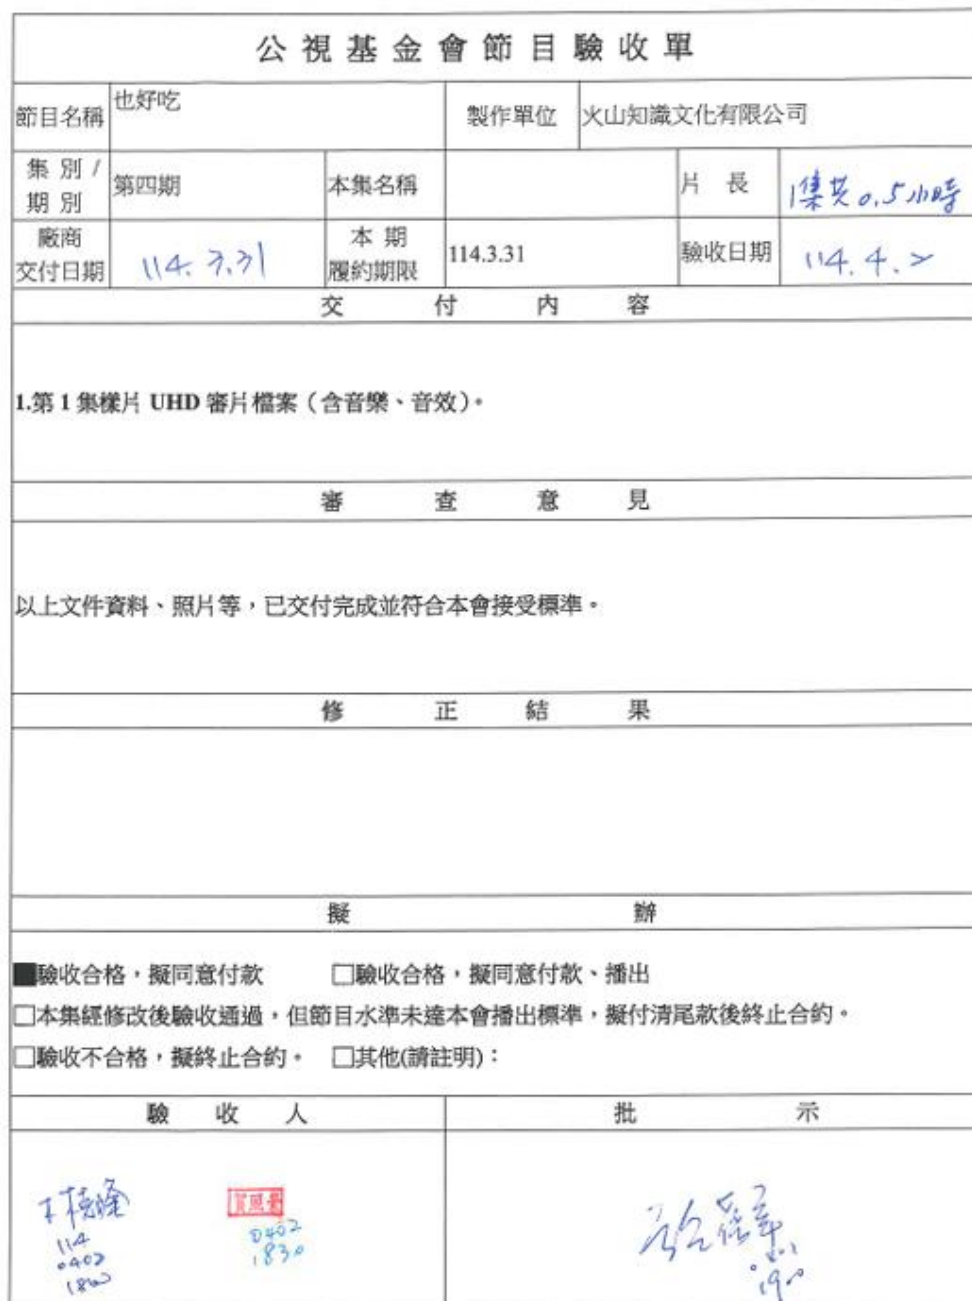 公視基金會節目驗收單
節目名稱 也好吃 製作單位 火山知識文化有限公司
集別/期別 第四期 本集名稱 片長 1集共0.5小時
廠商交付日期 114.3.31 本期履約期限 114.3.31 驗收日期 114.4.2
交付內容
1.第1集樣片UHD審片檔案（含音樂、音效）。
審查意見
以上文件資料、照片等，已交付完成並符合本會接受標準。
修正結果
擬辦
■驗收合格，擬同意付款 □驗收合格，擬同意付款、播出
□本集經修改後驗收通過，但節目水準未達本會播出標準，擬付清尾款後終止合約。
□驗收不合格，擬終止合約。 □其他(請註明)：
驗收人 批示
114 0402
0402 1830